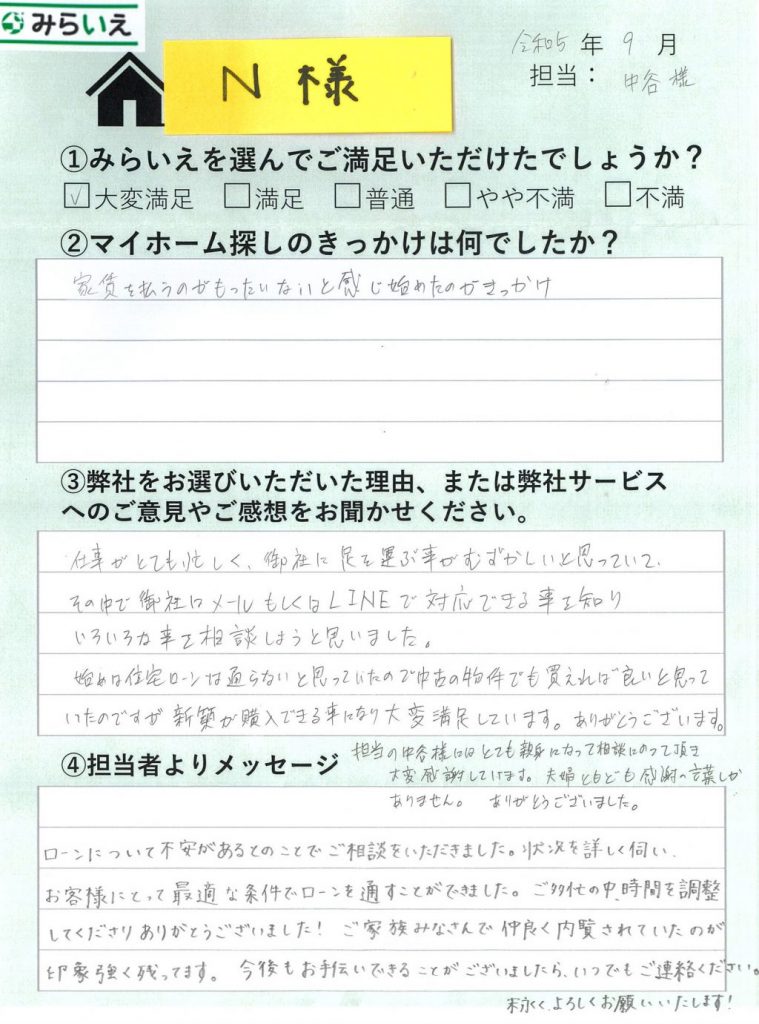 みらいえ
令和5年9月
N様
担当：中谷様
①みらいえを選んでご満足いただけたでしょうか？
☑大変満足 □満足 □普通 □やや不満 □不満
②マイホーム探しのきっかけは何でしたか？
家賃を払うのがもったいないと感じ始めたのがきっかけ
③弊社をお選びいただいた理由、または弊社サービス
へのご意見やご感想をお聞かせください。
仕事がとても忙しく、御社に足を運ぶ事がむずかしいと思っていて、
その中で御社はメールもしくはLINEで対応できる事を知り
いろいろな事を相談しようと思いました。
始めは住宅ローンは通らないと思っていたので中古の物件でも買えれば良いと思って
いたのですが新築が購入できる事になり大変満足しています。ありがとうございます。
担当の中谷様にはとても親身になって相談にのって頂き
大変感謝しています。夫婦ともども感謝の言葉しか
ありません。ありがとうございました。
④担当者よりメッセージ
ローンについて不安があるとのことでご相談をいただきました。状況を詳しく伺い、
お客様にとって最適な条件でローンを通すことができました。ご多忙の中、時間を調整
してくださりありがとうございました！ご家族みなさんで仲良く内覧されていたのが
印象強く残ってます。今後もお手伝いできることがございましたら、いつでもご連絡ください。
末永く、よろしくお願いいたします！